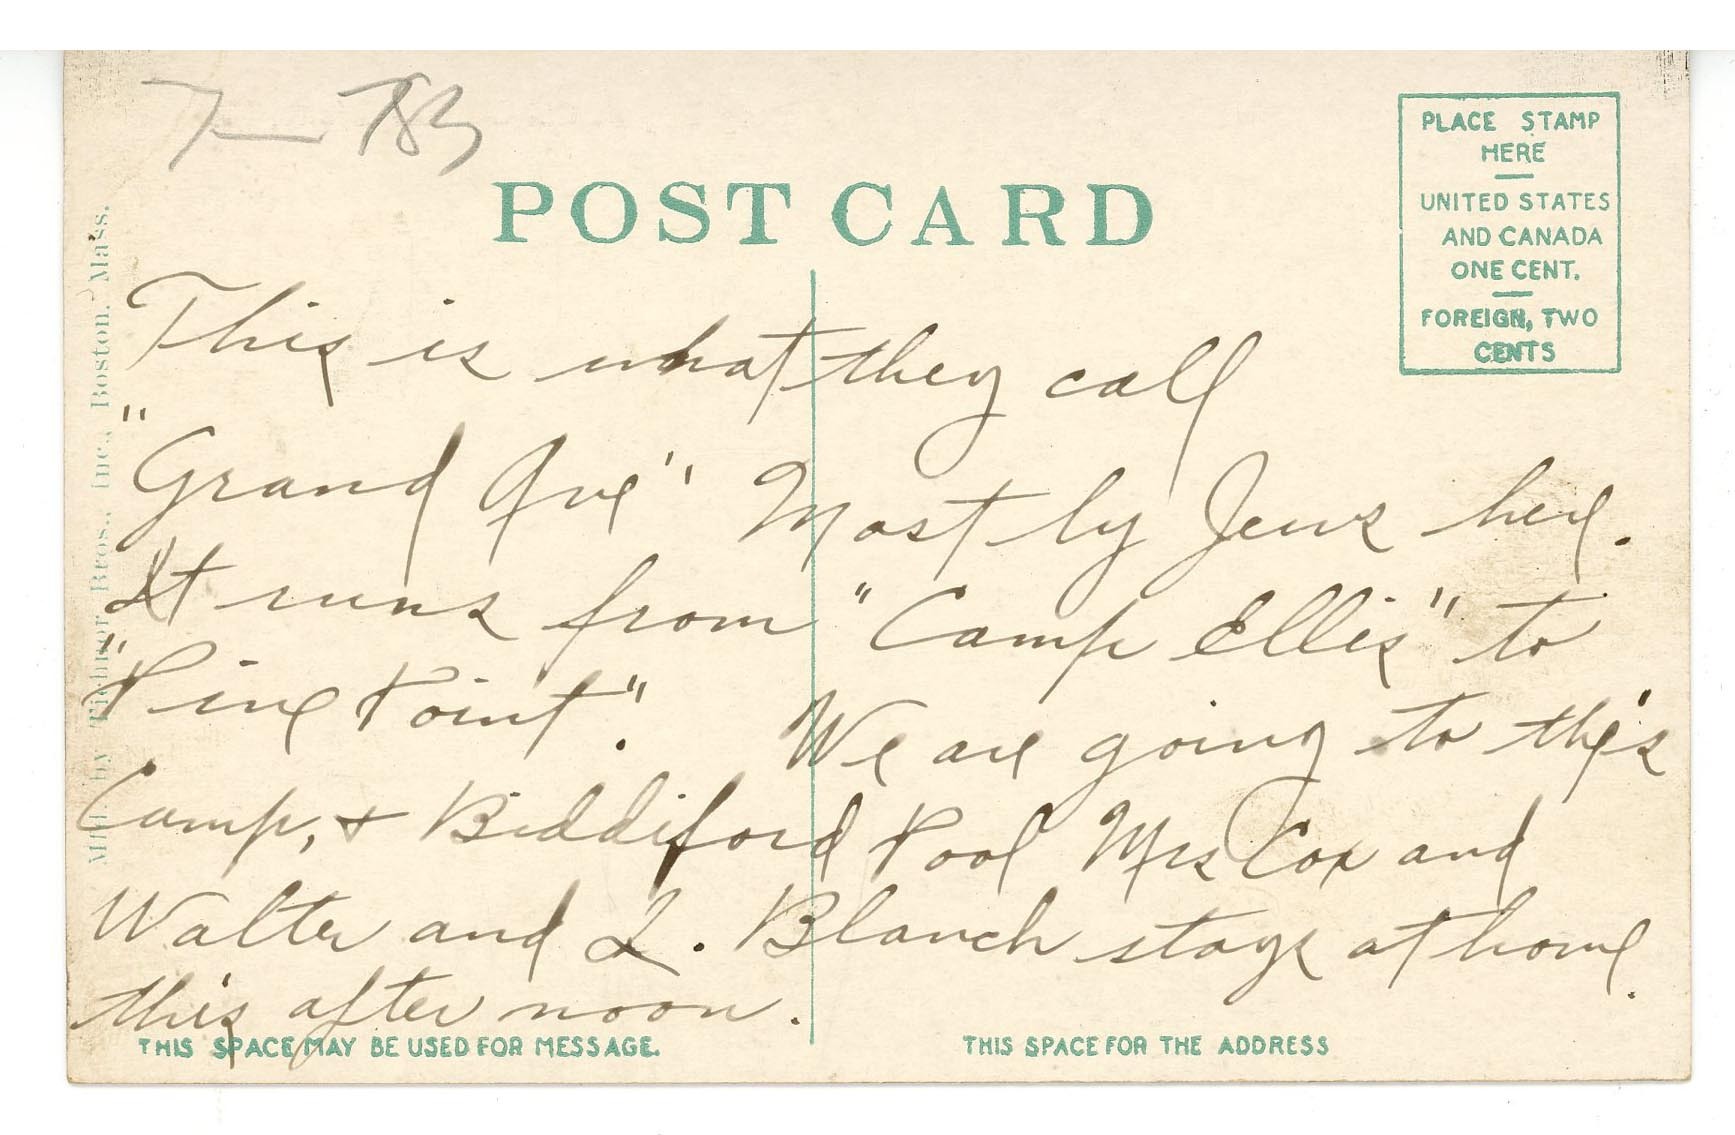 POST CARD
PLACE STAMP
HERE
UNITED STATES
AND CANADA
ONE CENT.
FOREIGN, TWO
CENTS
Mfd. by Tichnor Bros., Inc., Boston. Mass.
This is what they call
"Grand Ave" Mostly Jews here.
It runs from "Camp Ellis" to
"Pine Point". We are going to this
Camp, + Biddiford Pool Mrs Cox and
Walter and I. Blanch stays at home
this after noon.
THIS SPACE MAY BE USED FOR MESSAGE.
THIS SPACE FOR THE ADDRESS